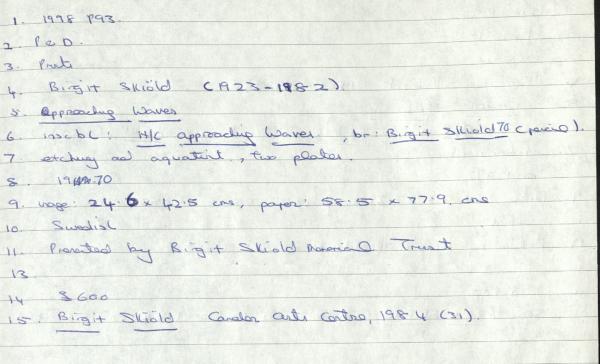 1. 1998 P93.
2. P & D.
3. Prints
4. Birgit Skiöld (1923-1982).
5. Approaching Waves
6. insc bl: H/C approaching Waves, br: Birgit Skiold 70 (pencil).
7 etching and aquatint, two plates.
8. 1970
9. image: 24.6 x 42.5 cms, paper: 58.5 x 77.9 cms
10 Swedish
11. Presented by Birgit Skiöld Memorial Trust
13
14 £600
15. Birgit Skiöld Camden Arts Centre, 1984 (31).